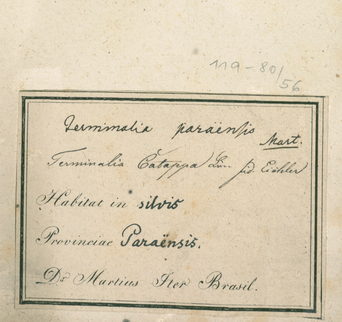 119-80/56
Terminalia paraënsis Mart.
Terminalia Catappa Lin. fid. Eichler
Habitat in silvis
Provinciae Paraënsis.
Dr Martius Iter Brasil.